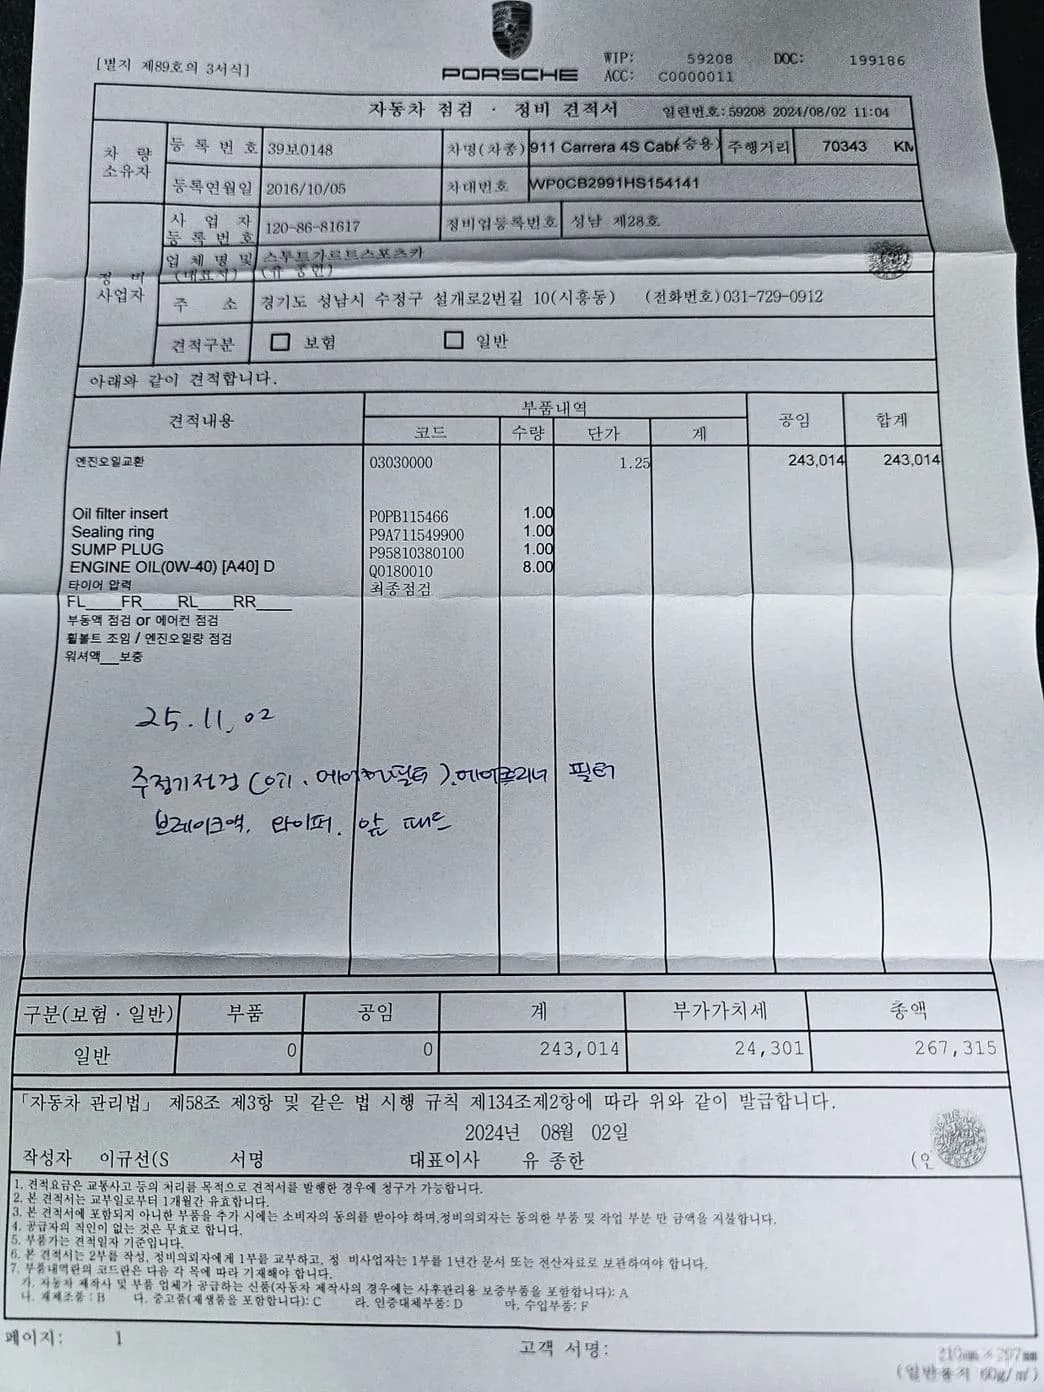 [별지 제89호의 3서식]
PORSCHE
WIP: 59208 DOC: 199186
ACC: C0000011
자동차 점검 · 정비 견적서 일련번호:59208 2024/08/02 11:04
차 량 소유자
등 록 번 호 39보0148 차명(차종) 911 Carrera 4S Cabr(승용) 주행거리 70343 KM
등록연월일 2016/10/05 차대번호 WP0CB2991HS154141
정 비 사업자
사 업 자 등 록 번 호 120-86-81617 정비업등록번호 성남 제28호
업 체 명 및 (대표자) 스투트가르트스포츠카 (유 종한)
주 소 경기도 성남시 수정구 설개로2번길 10(시흥동) (전화번호)031-729-0912
견적구분 □ 보험 □ 일반
아래와 같이 견적합니다.
견적내용 부품내역 공임 합계
코드 수량 단가 계
엔진오일교환 03030000 1.25 243,014 243,014
Oil filter insert P0PB115466 1.00
Sealing ring P9A711549900 1.00
SUMP PLUG P95810380100 1.00
ENGINE OIL(0W-40) [A40] D Q0180010 8.00
타이어 압력 최종점검
FL____FR____RL____RR____
부동액 점검 or 에어컨 점검
휠볼트 조임 / 엔진오일량 점검
워셔액__보충
25.11.02
주정기점검(오일, 에어컨필터), 에어크리너 필터
브레이크액, 와이퍼, 앞 패드
구분(보험·일반) 부품 공임 계 부가가치세 총액
일반 0 0 243,014 24,301 267,315
「자동차 관리법」 제58조 제3항 및 같은 법 시행 규칙 제134조제2항에 따라 위와 같이 발급합니다.
2024년 08월 02일
작성자 이규선(S 서명 대표이사 유 종한 (인
1. 견적요금은 교통사고 등의 처리를 목적으로 견적서를 발행한 경우에 청구가 가능합니다.
2. 본 견적서는 교부일로부터 1개월간 유효합니다.
3. 본 견적서에 포함되지 아니한 부품을 추가 시에는 소비자의 동의를 받아야 하며,정비의뢰자는 동의한 부품 및 작업 부분 만 금액을 지불합니다.
4. 공급자의 직인이 없는 것은 무효로 합니다.
5. 부품가는 견적일자 기준입니다.
6. 본 견적서는 2부를 작성, 정비의뢰자에게 1부를 교부하고, 정 비사업자는 1부를 1년간 문서 또는 전산자료로 보관하여야 합니다.
7. 부품내역란의 코드란은 다음 각 목에 따라 기재해야 합니다.
가. 자동차 제작사 및 부품 업체가 공급하는 신품(자동차 제작사의 경우에는 사후관리용 보증부품을 포함합니다): A
나. 재제조품 : B 다. 중고품(재생품을 포함합니다): C 라. 인증대체부품: D 마. 수입부품: F
페이지: 1
고객 서명:
210㎜×297㎜
(일반용지 60g/㎡)